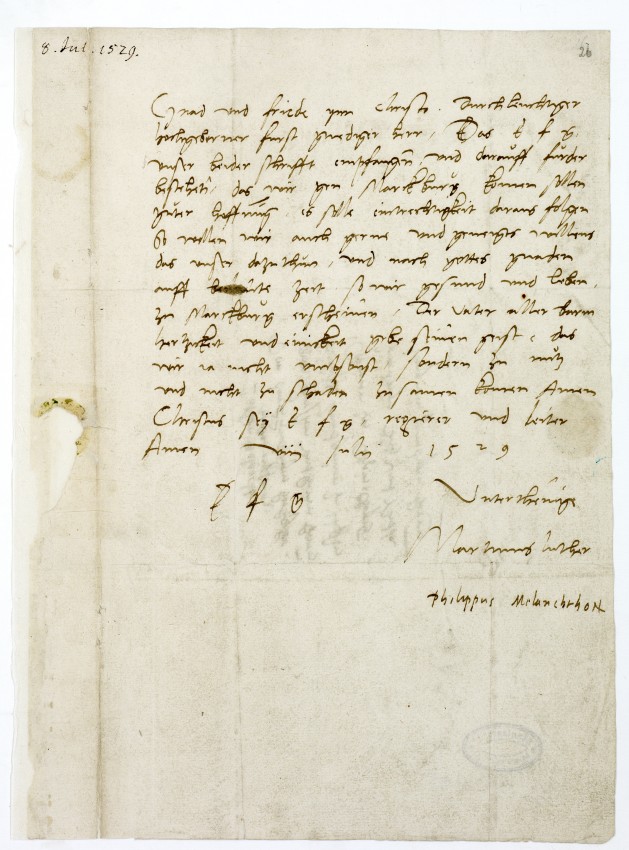 8. Jul. 1529.
26
Gnad und friede ynn Christo. Durchleuchtiger
hochgeborner furst gnediger herr, Das E f g
unser beider schrifft empfangen, und darauff furder
bestehet, das wir gen Marckburg komen sollen
guter hoffnung es solle eintrechtigkeit daraus folgen
So wollen wir auch gerne und geneigts willens
das unser dazu thun, und nach gottes gnaden
auff zeit so wir gesund und leben,
zu Marckburg erscheinen, Der Vater aller barm
hertzickeit und einickeit gebe seinen geist, das
wir ia nicht umbsonst sondern zu nutz
und nicht zu schaden zusamen komen Amen
Christus sey E f g regierer und leiter
Amen viij Julij 1529
E f G
Untertheinige
Martinus Luther
Philippus Melanchthon